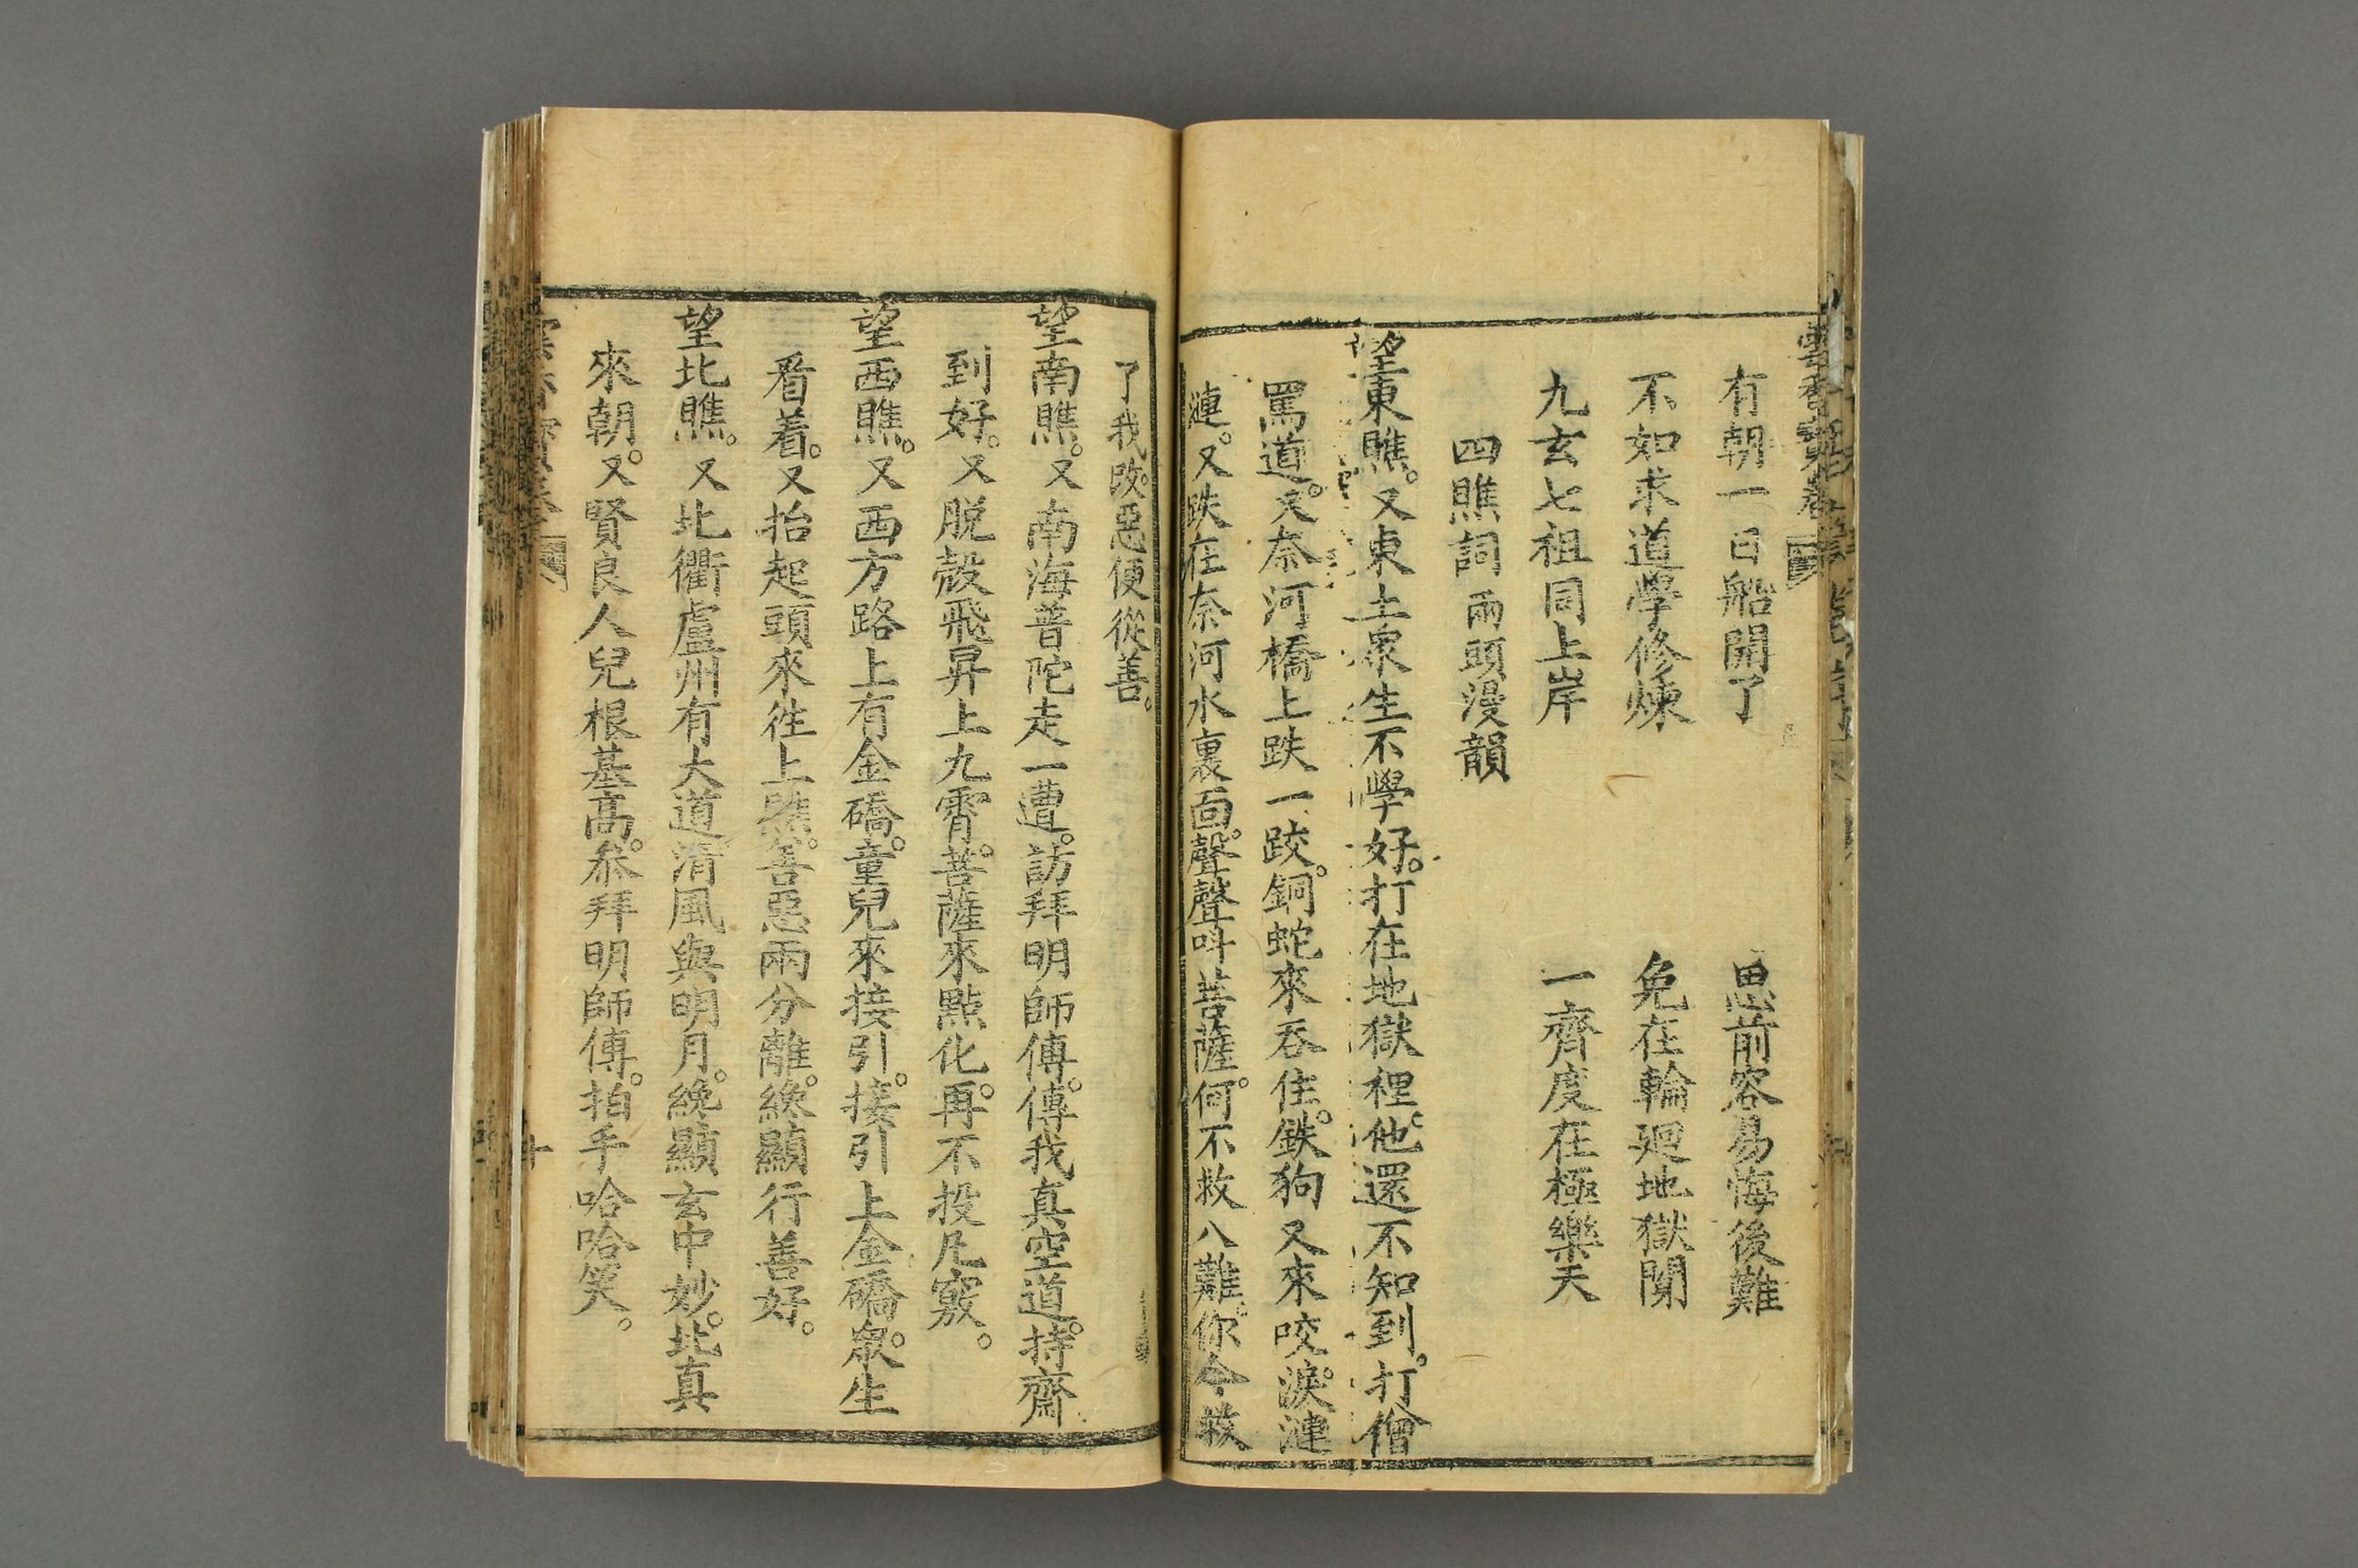 雪香寶卷
有朝一日船開了 思前容易悔後難
不如求道學修煉 免在輪廻地獄閒
九玄七祖同上岸 一齊度在極樂天
四瞧詞 兩頭漫韻
望東瞧。又東土衆生不學好。打在地獄裡。他還不知到。打僧
罵道。又奈河橋上跌一跤。銅蛇來吞住。鉄狗又來咬。淚漣
漣。又跌在奈河水裏面。聲聲呌菩薩。何不救八難。你今救
了我。改惡便從善。
望南瞧。又南海普陀走一遭。訪拜明師傅。傳我真空道。持齋
到好。又脱殼飛昇上九霄。菩薩來點化。再不投凡竅。
望西瞧。又西方路上有金礄。童兒來接引。接引上金礄。衆生
看着。又抬起頭來往上瞧。善惡兩分離。纔顯行善好。
望北瞧。又北衢盧州有大道。清風與明月。纔顯玄中妙。北真
來朝。又賢良人兒根基高。叅拜明師傅。拍手哈哈笑。
十